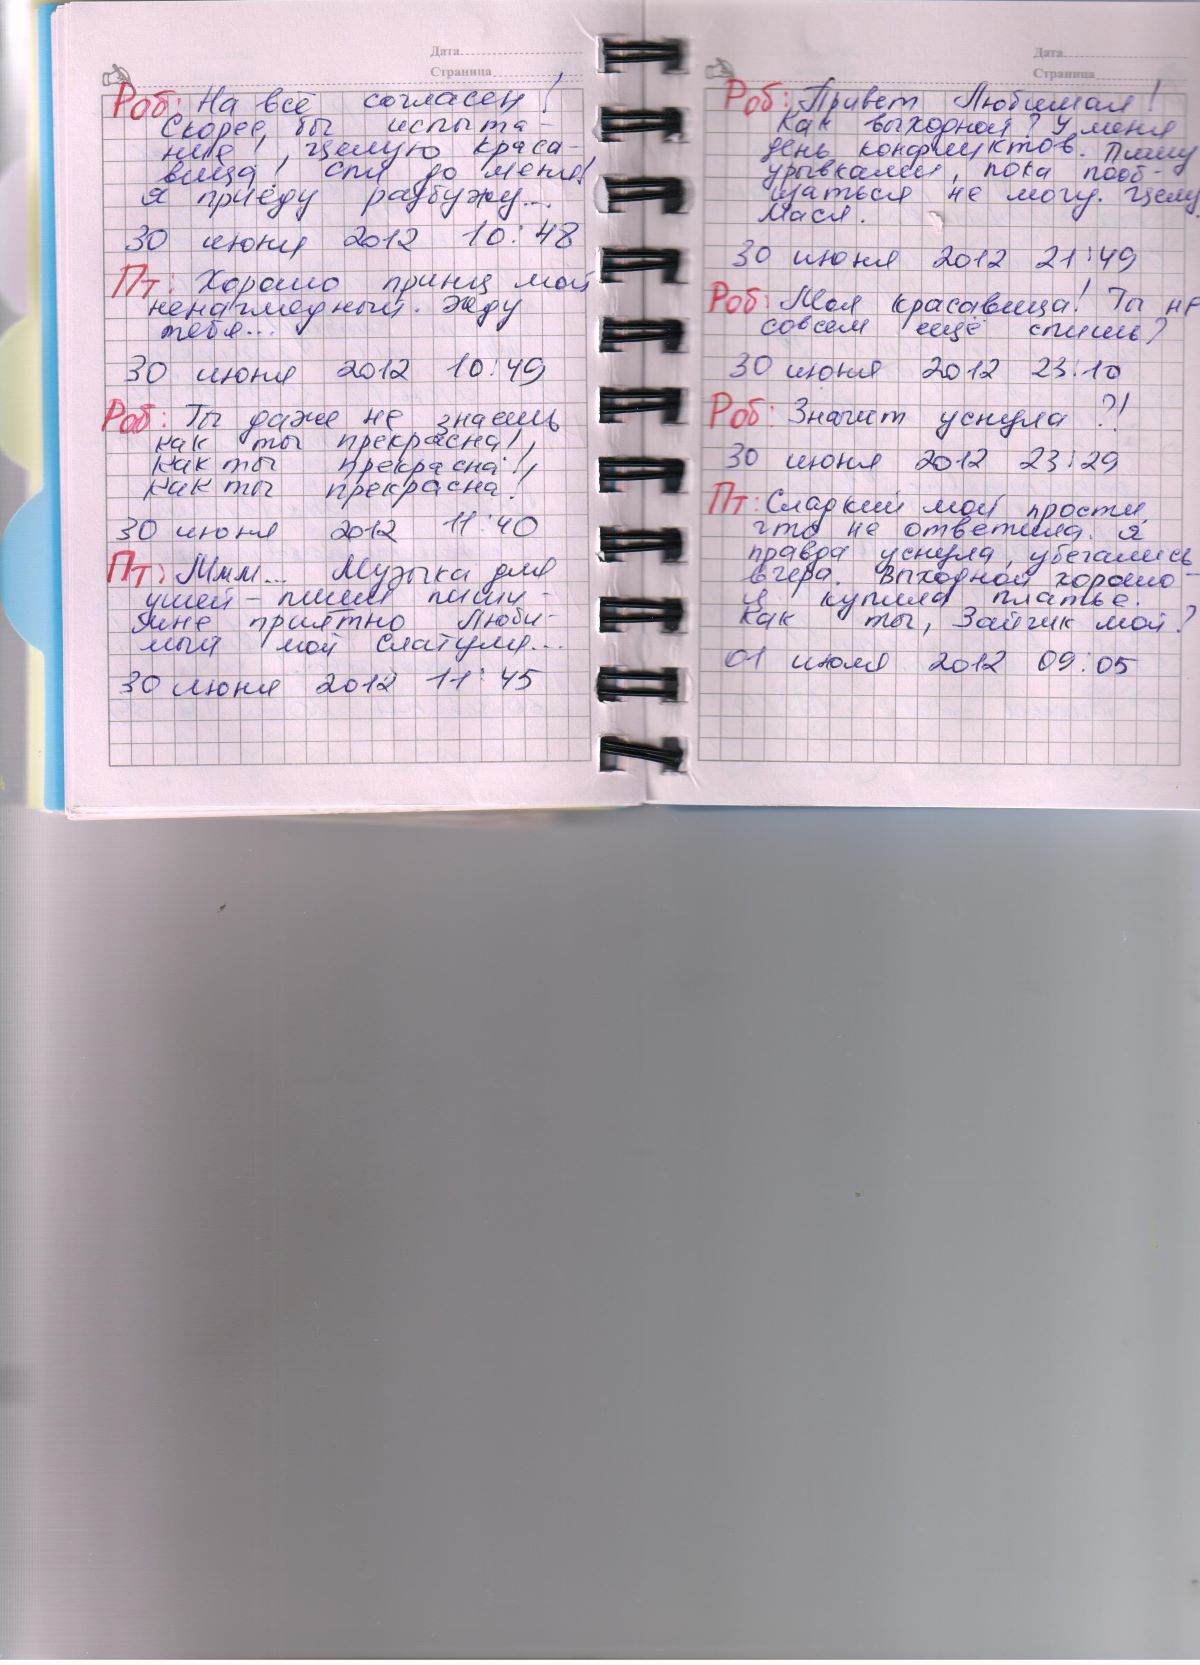 Дата
Страница
Роб: На всё согласен!
Скорее бы испыта-
ние!, целую краса-
вица! Спи до меня!
Я приеду разбужу...
30 июня 2012 10:48
Пт: Хорошо принц мой
ненаглядный. Жду
тебя...
30 июня 2012 10:49
Роб: Ты даже не знаешь
как ты прекрасна!,
как ты прекрасна!,
как ты прекрасна!
30 июня 2012 11:40
Пт: Ммм... Музыка для
ушей - пиши пиши -
мне приятно Люби-
мый мой
30 июня 2012 11:45
Дата
Страница
Роб: Привет Любимая!
Как выходной? У меня
день конфликтов. Пишу
урывками, пока пооб-
щаться не могу. Целу
Мася.
30 июня 2012 21:49
Роб: Моя красавица! Ты не
совсем ещё спишь?
30 июня 2012 23:10
Роб: Значит уснула?!
30 июня 2012 23:29
Пт: Сладкий мой прости
что не ответила. Я
правда уснула, убегались
вчера. Выходной хорошо -
я купила платье.
Как ты, Зайчик мой?
01 июля 2012 09:05